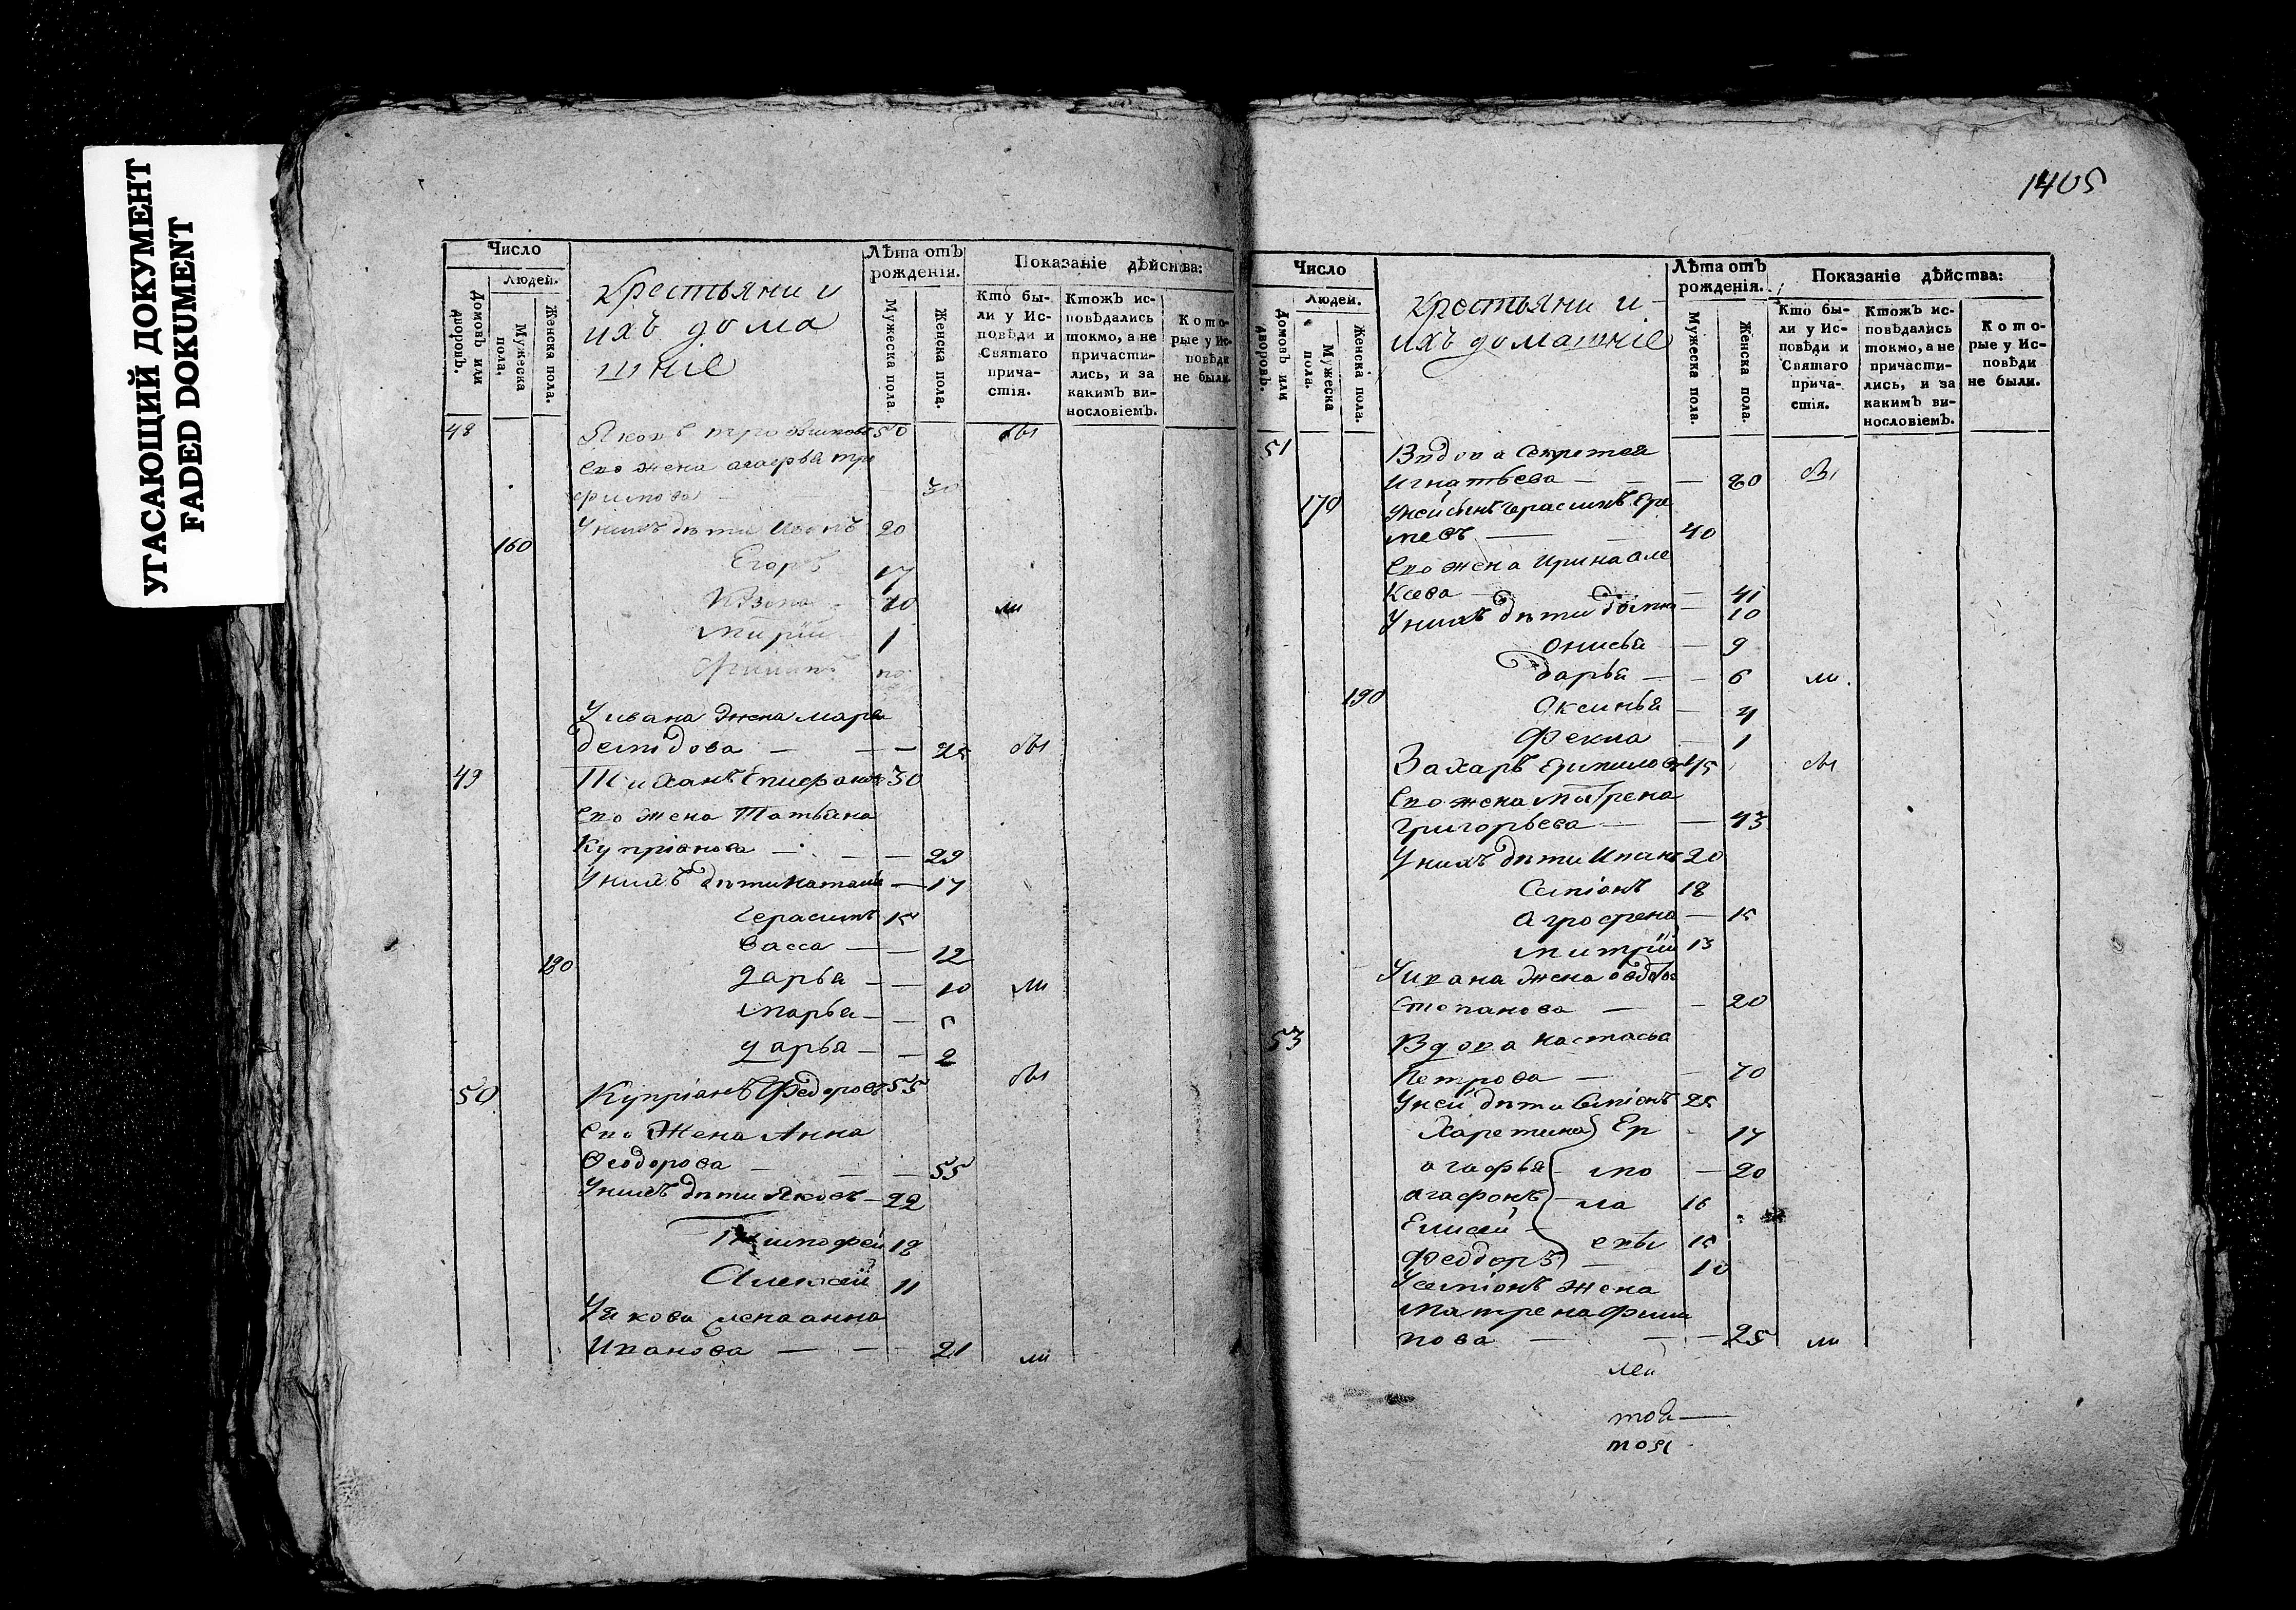 УГАСАЮЩИЙ ДОКУМЕНТ
FADED DOKUMENT
Число
Людей.
Домовъ или дворовъ.
Мужеска пола.
Женска пола.
Крестьяни и
ихъ дома
шніе
Лѣта отъ рожденія.
Мужеска пола.
Женска пола.
Показаніе дѣйства:
Кто бы-
ли у Ис-
повѣди и
Святаго
прича-
стія.
Ктожъ ис-
повѣдались
токмо, а не
причасти-
лись, и за
какимъ ви-
нословіемъ.
Кото-
рые у Ис-
повѣди
не были.
48 Яковъ 50 бы
Его жена
30
У нихъ дѣти Иванъ 20
160
Егоръ 17
10 ли
1
У ивана жена марья
демидова — — — 25 бы
49 Тиханъ Епифановъ 30
Его жена Татьяна
Купріянова — — — 29
У нихъ дѣти наталья — 17
Герасимъ 15
васса — — 12
180
дарья — — 10 ли
марья — —
дарья — — 2
50 Купріянъ Федоровъ 55 бы
Его Жена Анна
Ѳеодорова — — — 55
У нихъ дѣти Яковъ — 22
Тимофей 18
Алексѣй 11
У якова жена анна
Иванова — — — 21 ли
1405
Число
Людей.
Домовъ или дворовъ.
Мужеска пола.
Женска пола.
Крестьяни и
ихъ домашніе
Лѣта отъ рожденія.
Мужеска пола.
Женска пола.
Показаніе дѣйства:
Кто бы-
ли у Ис-
повѣди и
Святаго
прича-
стія.
Ктожъ ис-
повѣдались
токмо, а не
причасти-
лись, и за
какимъ ви-
нословіемъ.
Кото-
рые у Ис-
повѣди
не были.
51 Вдова
игнатьева — — — 80 бы
170 У ней сынъ Герасимъ
40
Его жена Ирина але
ксева — — 41
У нихъ дѣти — 10
Онисья — 9
Дарья — — 6 ли
190
Аксинья — 4
Фекла — 1
Захаръ 45 бы
Его жена матрена
Григорьева — — 43
У нихъ дѣти Иванъ 20
Семіонъ 18
Агрофена — 15
митрій 13
У ивана жена овдотья
степанова — — 20
53 Вдова настасья
Петрова — — 70
У ней дѣти Семіонъ 25
Харетина) Ер — 17
агафья — мо — 20
агафонъ — ла 16
Елисей — евы 15
Феддоръ) — 10
У семіонъ жена
матрена Фили
пова — — — 25 ли
лей
той —